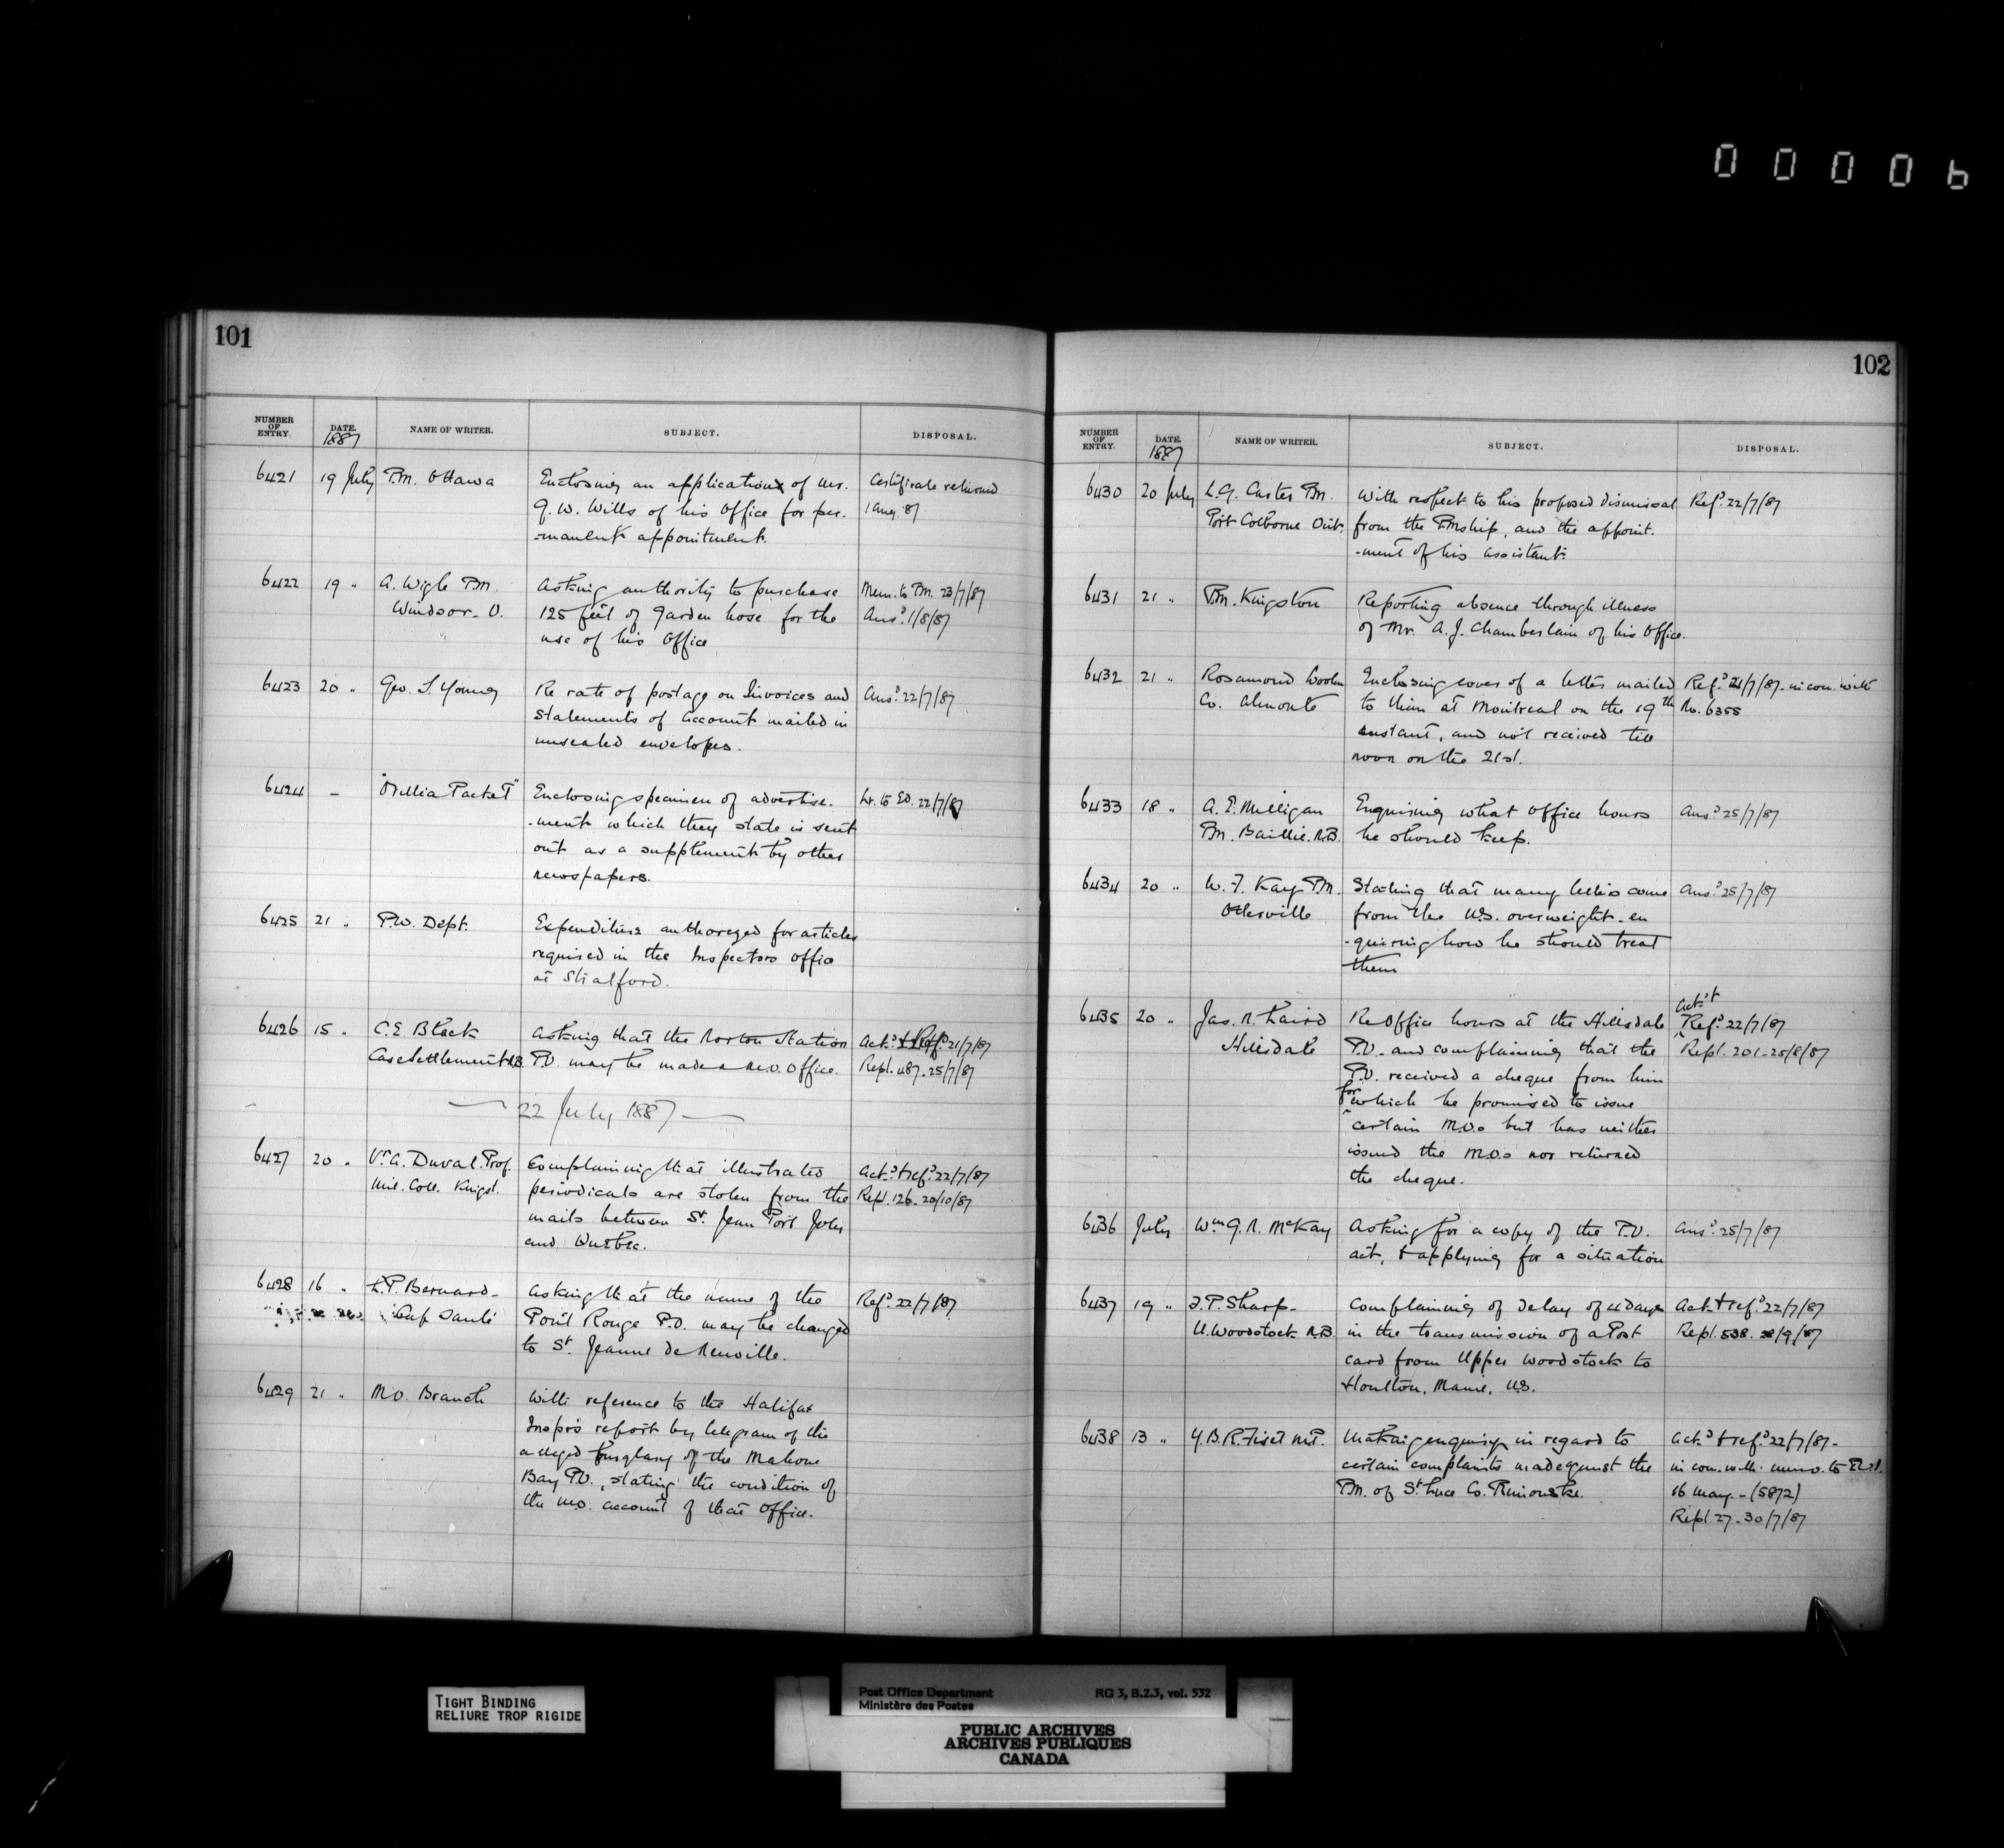 000006
101
NUMBER OF ENTRY. DATE. 1887 NAME OF WRITER. SUBJECT. DISPOSAL.
6421 19 July P.M. Ottawa Enclosing an application of Mr. Certificate returned
G. W. Wills of his Office for per- 1 Aug. 87
-manent appointment.
6422 19 " A. Wigle P.M. Asking authority to purchase Mem. to P.M. 23/7/87
Windsor. O. 125 feet of garden hose for the Ansd. 1/8/87
use of his Office
6423 20 " Geo. S. Young Re rate of postage on Invoices and Ansd. 22/7/87
Statements of Account mailed in
unsealed envelopes.
6424 - "Orillia Packet" Enclosing specimen of advertise- Lr. to Ed. 22/7/87
-ment which they state is sent
out as a supplement by other
newspapers.
6425 21 " P.W. Dept. Expenditure authorized for articles
required in the Inspectors Office
at Stratford.
6426 15 " C.E. Black Asking that the Norton Station Ackd. & Refd. 21/7/87
Case Settlement N.B. P.O. may be made a M.O. Office. Repl. 487. 25/7/87
22 July 1887
6427 20 " A. Duval. Prof. Complaining that illustrated Ackd. & refd. 22/7/87
Mil. Coll. Kingst. periodicals are stolen from the Repl. 126. 20/10/87
mails between St. Jean Port Joly
and Quebec.
6428 16 " L.P. Bernard- Asking that the name of the Refd. 22/7/87
Cap Santé Point Rouge P.O. may be changed
to St. Jeanne de Neuville.
6429 21 " M.O. Branch With reference to the Halifax
Inspr's report by telegram of the
alleged burglary of the Mahone
Bay P.O., stating the condition of
the M.O. account of that Office.
102
NUMBER OF ENTRY. DATE. 1887 NAME OF WRITER. SUBJECT. DISPOSAL.
6430 20 July L.G. Carter P.M. With respect to his proposed dismissal Refd. 22/7/87
Port Colborne Ont. from the P.Mship, and the appoint-
-ment of his assistant.
6431 21 " P.M. Kingston Reporting absence through illness
of Mr. A.J. Chamberlain of his Office.
6432 21 " Rosamond Woolen Enclosing cover of a letter mailed Refd. 21/7/87. in con. with
Co. Almonte to them at Montreal on the 19th No. 6355
instant, and not received till
noon on the 21st.
6433 18 " A. E. Milligan Enquiring what office hours Ansd. 25/7/87
P.M. Baillie. N.B. he should keep.
6434 20 " W. F. Kay P.M. Stating that many letters come Ansd. 25/7/87
from the U.S. overweight- en
-quiring how he should treat
them
6435 20 " Jas. R. Laird Re Office hours at the Hillsdale Ackd. & Refd. 22/7/87
Hillsdale P.O. and complaining that the Repl. 201-25/8/87
P.O. received a cheque from him
for which he promised to issue
certain M.O.s but has neither
issued the M.O.s nor returned
the cheque.
6436 July Wm. G. R. McKay Asking for a copy of the P.O. Ansd. 25/7/87
act, & applying for a situation
6437 19 " J.P. Sharp- Complaining of delay of 4 days Ackd. & refd. 22/7/87
U. Woodstock N.B. in the transmission of a Post Repl. 538.
card from Upper Woodstock to
Houlton, Maine, U.S.
6438 13 " J.B.R. Fiset M.P. Making enquiry in regard to Ackd. & refd. 22/7/87-
certain complaints made against the in con. with memo. to
P.M. of St. Luce Co. Rimouski. 16 May - (5872)
Repl. 27-30/7/87
TIGHT BINDING
RELIURE TROP RIGIDE
Post Office Department RG 3, B.2.3, vol. 532
Ministère des Postes
PUBLIC ARCHIVES
ARCHIVES PUBLIQUES
CANADA